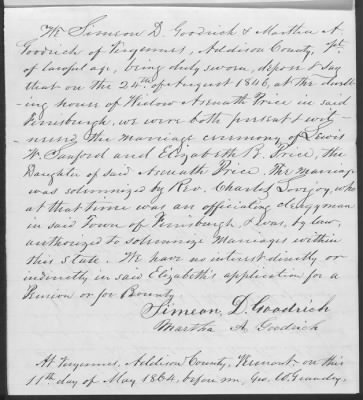 We Simeon D. Goodrich & Martha A.
Goodrich of Vergennes, Addison County, Vt.
of lawful age, being duly sworn, depose & say
that on the 24th of August 1846, at the dwell-
ing house of Widow Asenath Price in said
Ferrisburgh, we were both present & wit-
nessed the marriage ceremony of Lewis
W. Sanford and Elizabeth B. Price, the
Daughter of said Asenath Price. The marriage
was solemnized by Rev. Charles Lovejoy, who
at that time was an officiating clergyman
in said Town of Ferrisburgh, & was, by law,
authorized to solemnize Marriages within
this State. We have no interest directly or
indirectly in said Elizabeth's application for a
Pension or for Bounty.
Simeon D. Goodrich
Martha A. Goodrich
At Vergennes, Addison County, Vermont on this
11th day of May 1864, before me, Geo. W. Grandey,